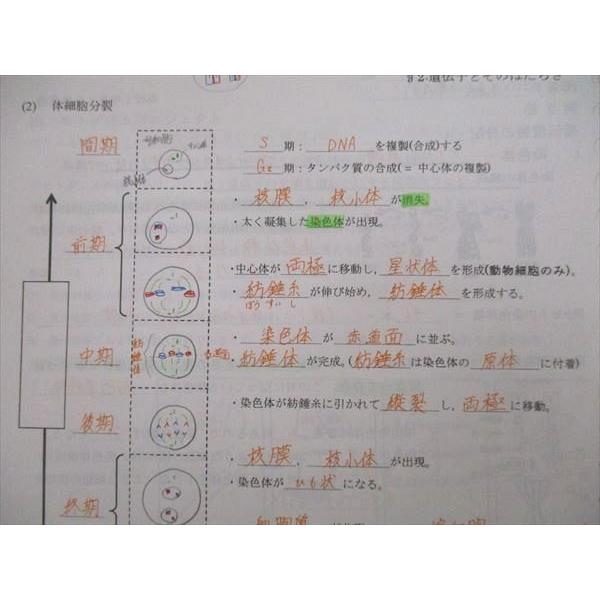 §2.遺伝子とそのはたらき
(2) 体細胞分裂
間期
S 期：DNA を複製(合成)する
G₂ 期：タンパク質の合成(＝中心体の複製)
・核膜，核小体 が消失。
・太く凝集した染色体が出現。
前期
・中心体が 両極 に移動し，星状体 を形成(動物細胞のみ)。
・紡錘糸 が伸び始め，紡錘体 を形成する。
ぼうすいし
・染色体 が 赤道面 に並ぶ。
中期
紡錘体
赤道面
・紡錘体 が完成。(紡錘糸 は染色体の 原体 に付着)
後期
・染色体が紡錘糸に引かれて 縦裂 し，両極 に移動。
・核膜，核小体 が出現。
・染色体が ひも状 になる。
終期